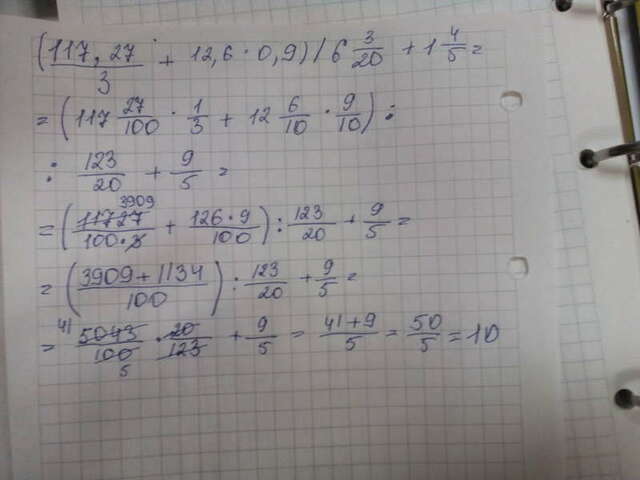 (117,27/3 + 12,6 · 0,9) / 6 3/20 + 1 4/5 =
= (117 27/100 · 1/3 + 12 6/10 · 9/10) :
: 123/20 + 9/5 =
= (11727 3909/100·3 + 126·9/100) : 123/20 + 9/5 =
= (3909+1134/100) : 123/20 + 9/5 =
= 41 5043/100 5 · 20/123 + 9/5 = 41+9/5 = 50/5 = 10